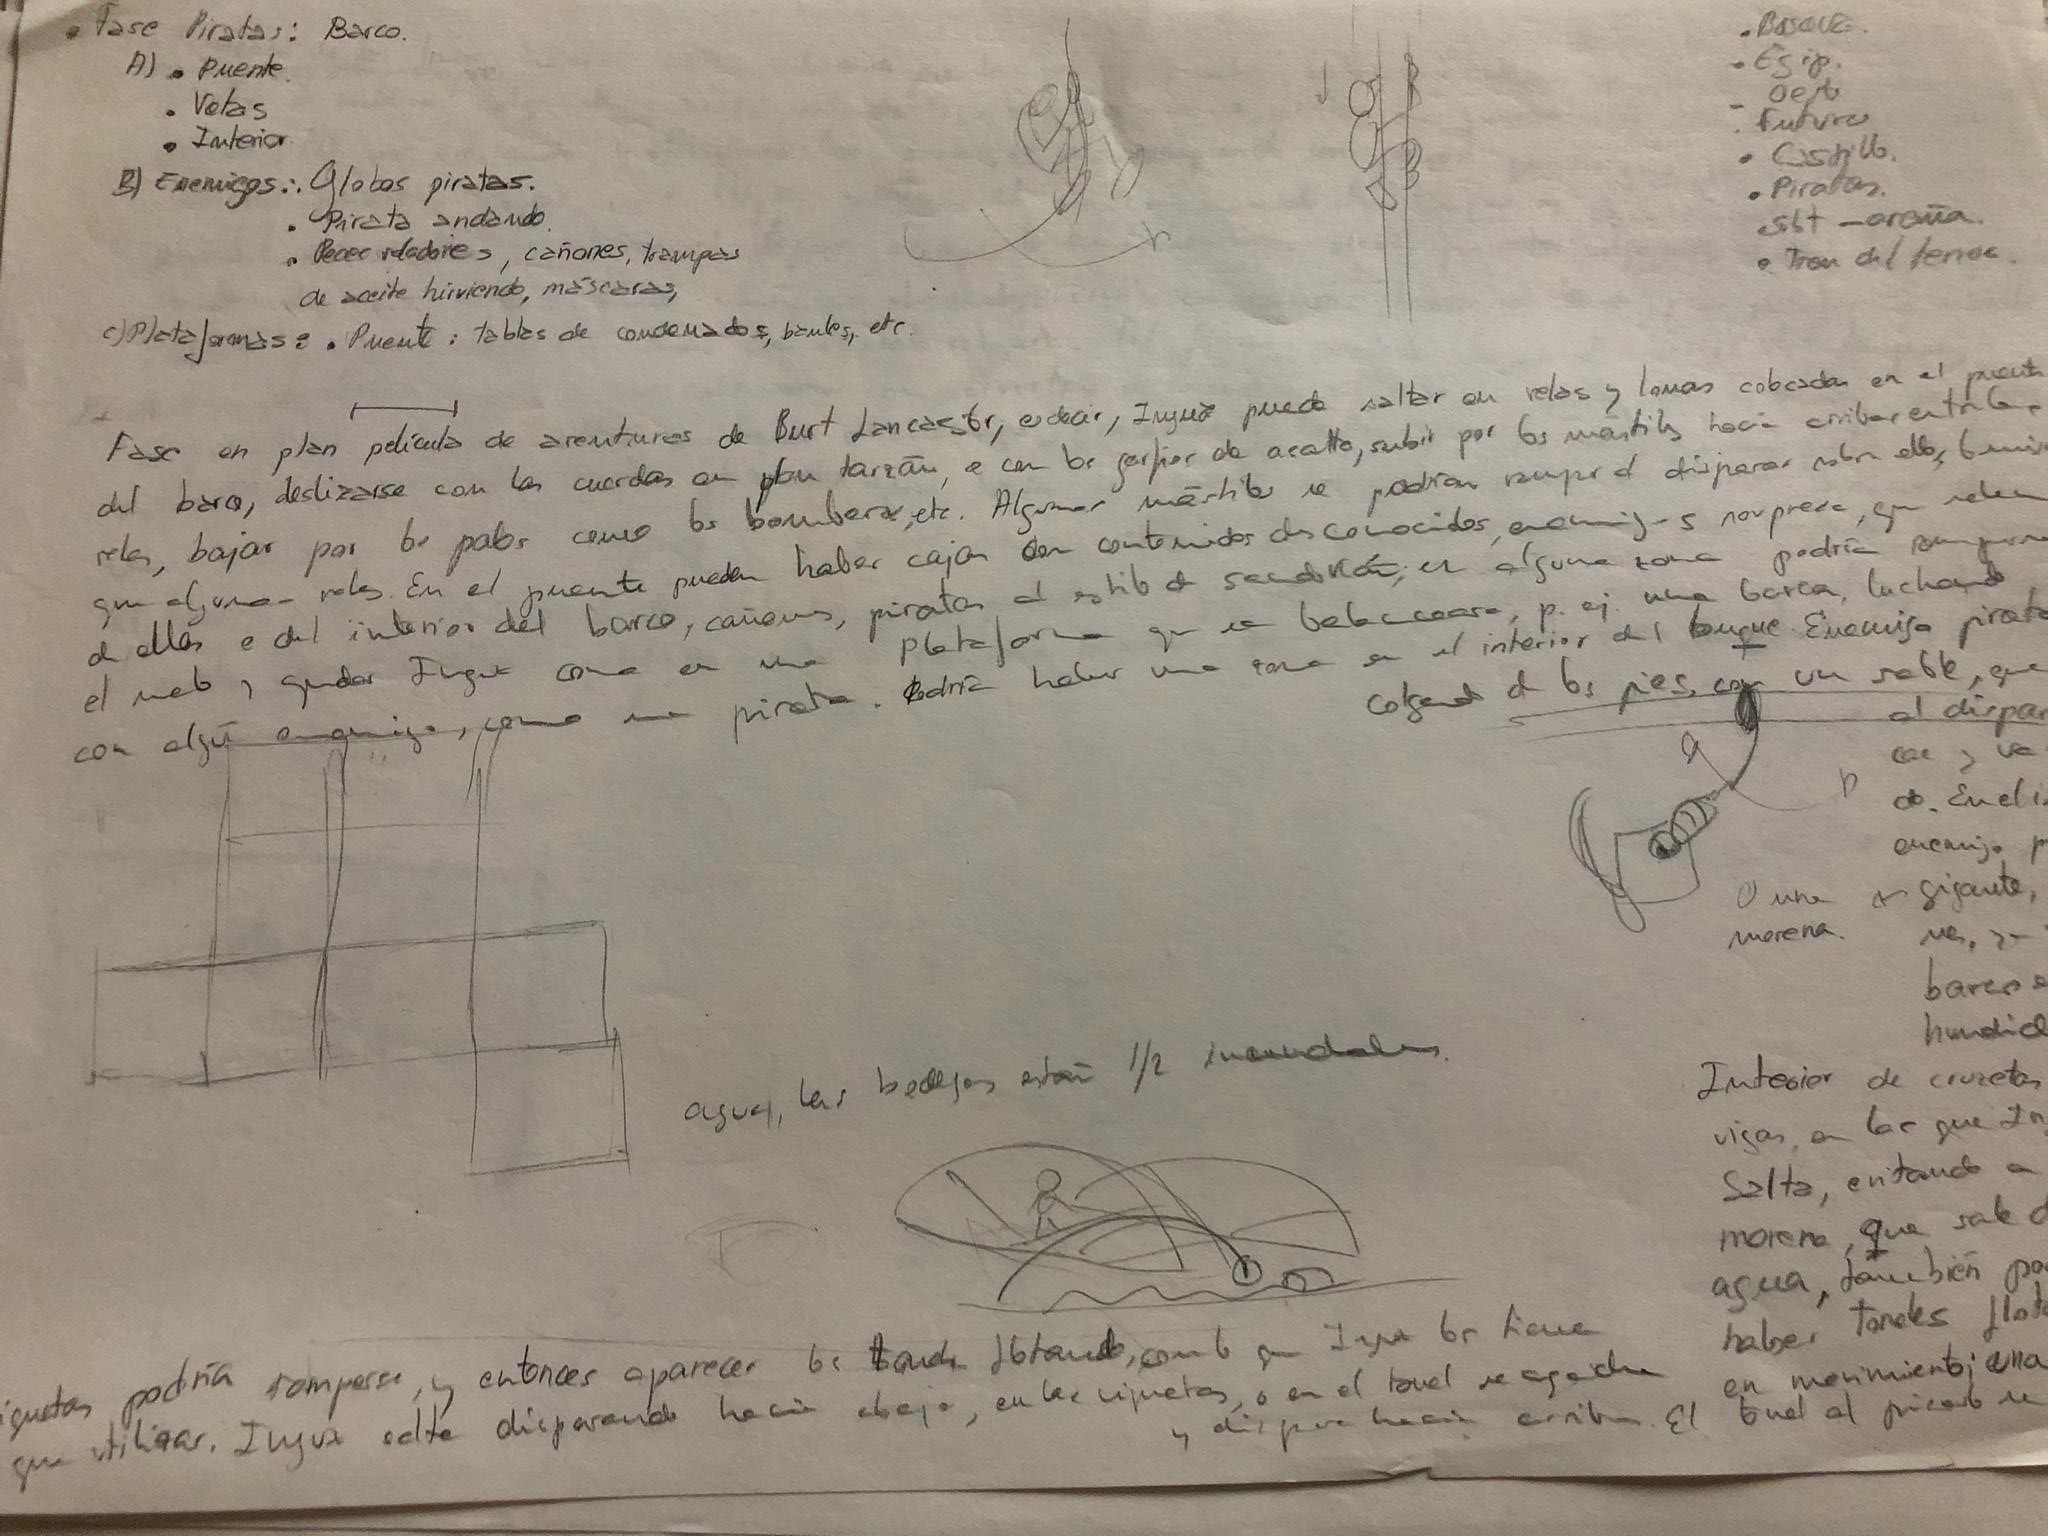 • Fase Piratas: Barco.
A) • Puente.
• Velas
• Interior
B) Enemigos: Globos piratas.
• Pirata andando.
• Peces voladores, cañones, trampas
de aceite hirviendo, máscaras,
C) Plataformas: • Puente: tablas de condenados, baules, etc.
• Bosque.
• Egip.
- Oeste
• Futuro
• Castillo.
• Piratas.
araña.
• Tren del terror.
Fase en plan película de aventuras de Burt Lancaster, es decir, puede saltar en velas y lonas colocadas en el puente
del barco, deslizarse con las cuerdas en plan tarzán, o con los garfios de asalto, subir por los mástiles hacia arriba entre las
velas, bajar por los palos como los bomberos, etc. Algunos mástiles se podrían romper al disparar sobre ellos, lo mismo
que algunas velas. En el puente pueden haber cajas con contenidos desconocidos, enemigos sorpresa, que salen
de ellas o del interior del barco, cañones, piratas al estilo de en alguna zona podría romperse
el suelo y quedar como en una plataforma que se balanceara, p. ej. una barca, luchando
con algún enemigo, como un pirata. Podría haber una zona en el interior del buque. Enemigo pirata
colgando de los pies, con un sable, que
al dispar
cae y va
do. En el
enemigo p
gigante,
O una
morena.
barco
hundid
Interior de crucetas
vigas, en las que
Salta, evitando a
morena, que sale d
agua, también po
haber toneles flota
en movimiento;
agua, las bodegas están 1/2 inundadas.
podría romperse, y entonces aparecer los flotando, con lo que los tiene
que utilizar. salta disparando hacia abajo, en las o en el tonel se agacha
y dispara hacia arriba. El tonel al se